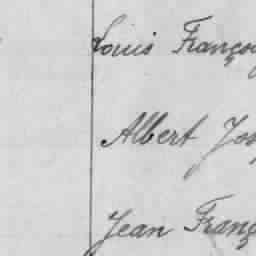 Louis Franço
Albert Jos
Jean Franç